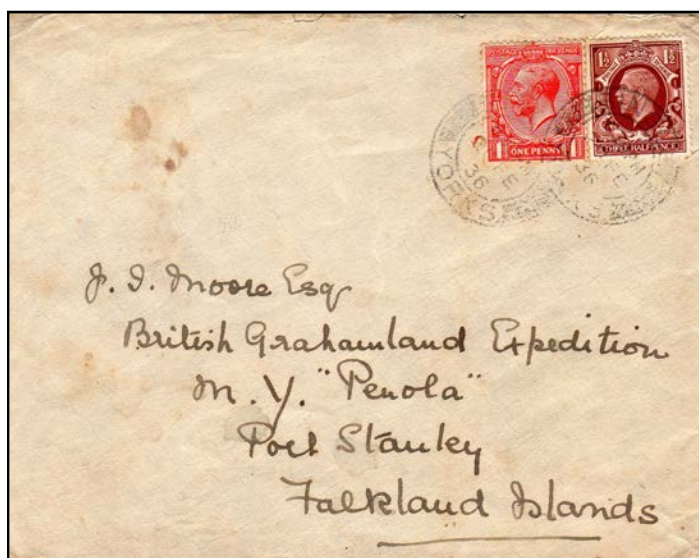 POSTAGE REVENUE
1 ONE PENNY 1
1½ 1½
THREE HALFPENCE
YORKS
36
36
J. I. Moore Esq
British Grahamland Expedition
M. Y. "Penola"
Port Stanley
Falkland Islands